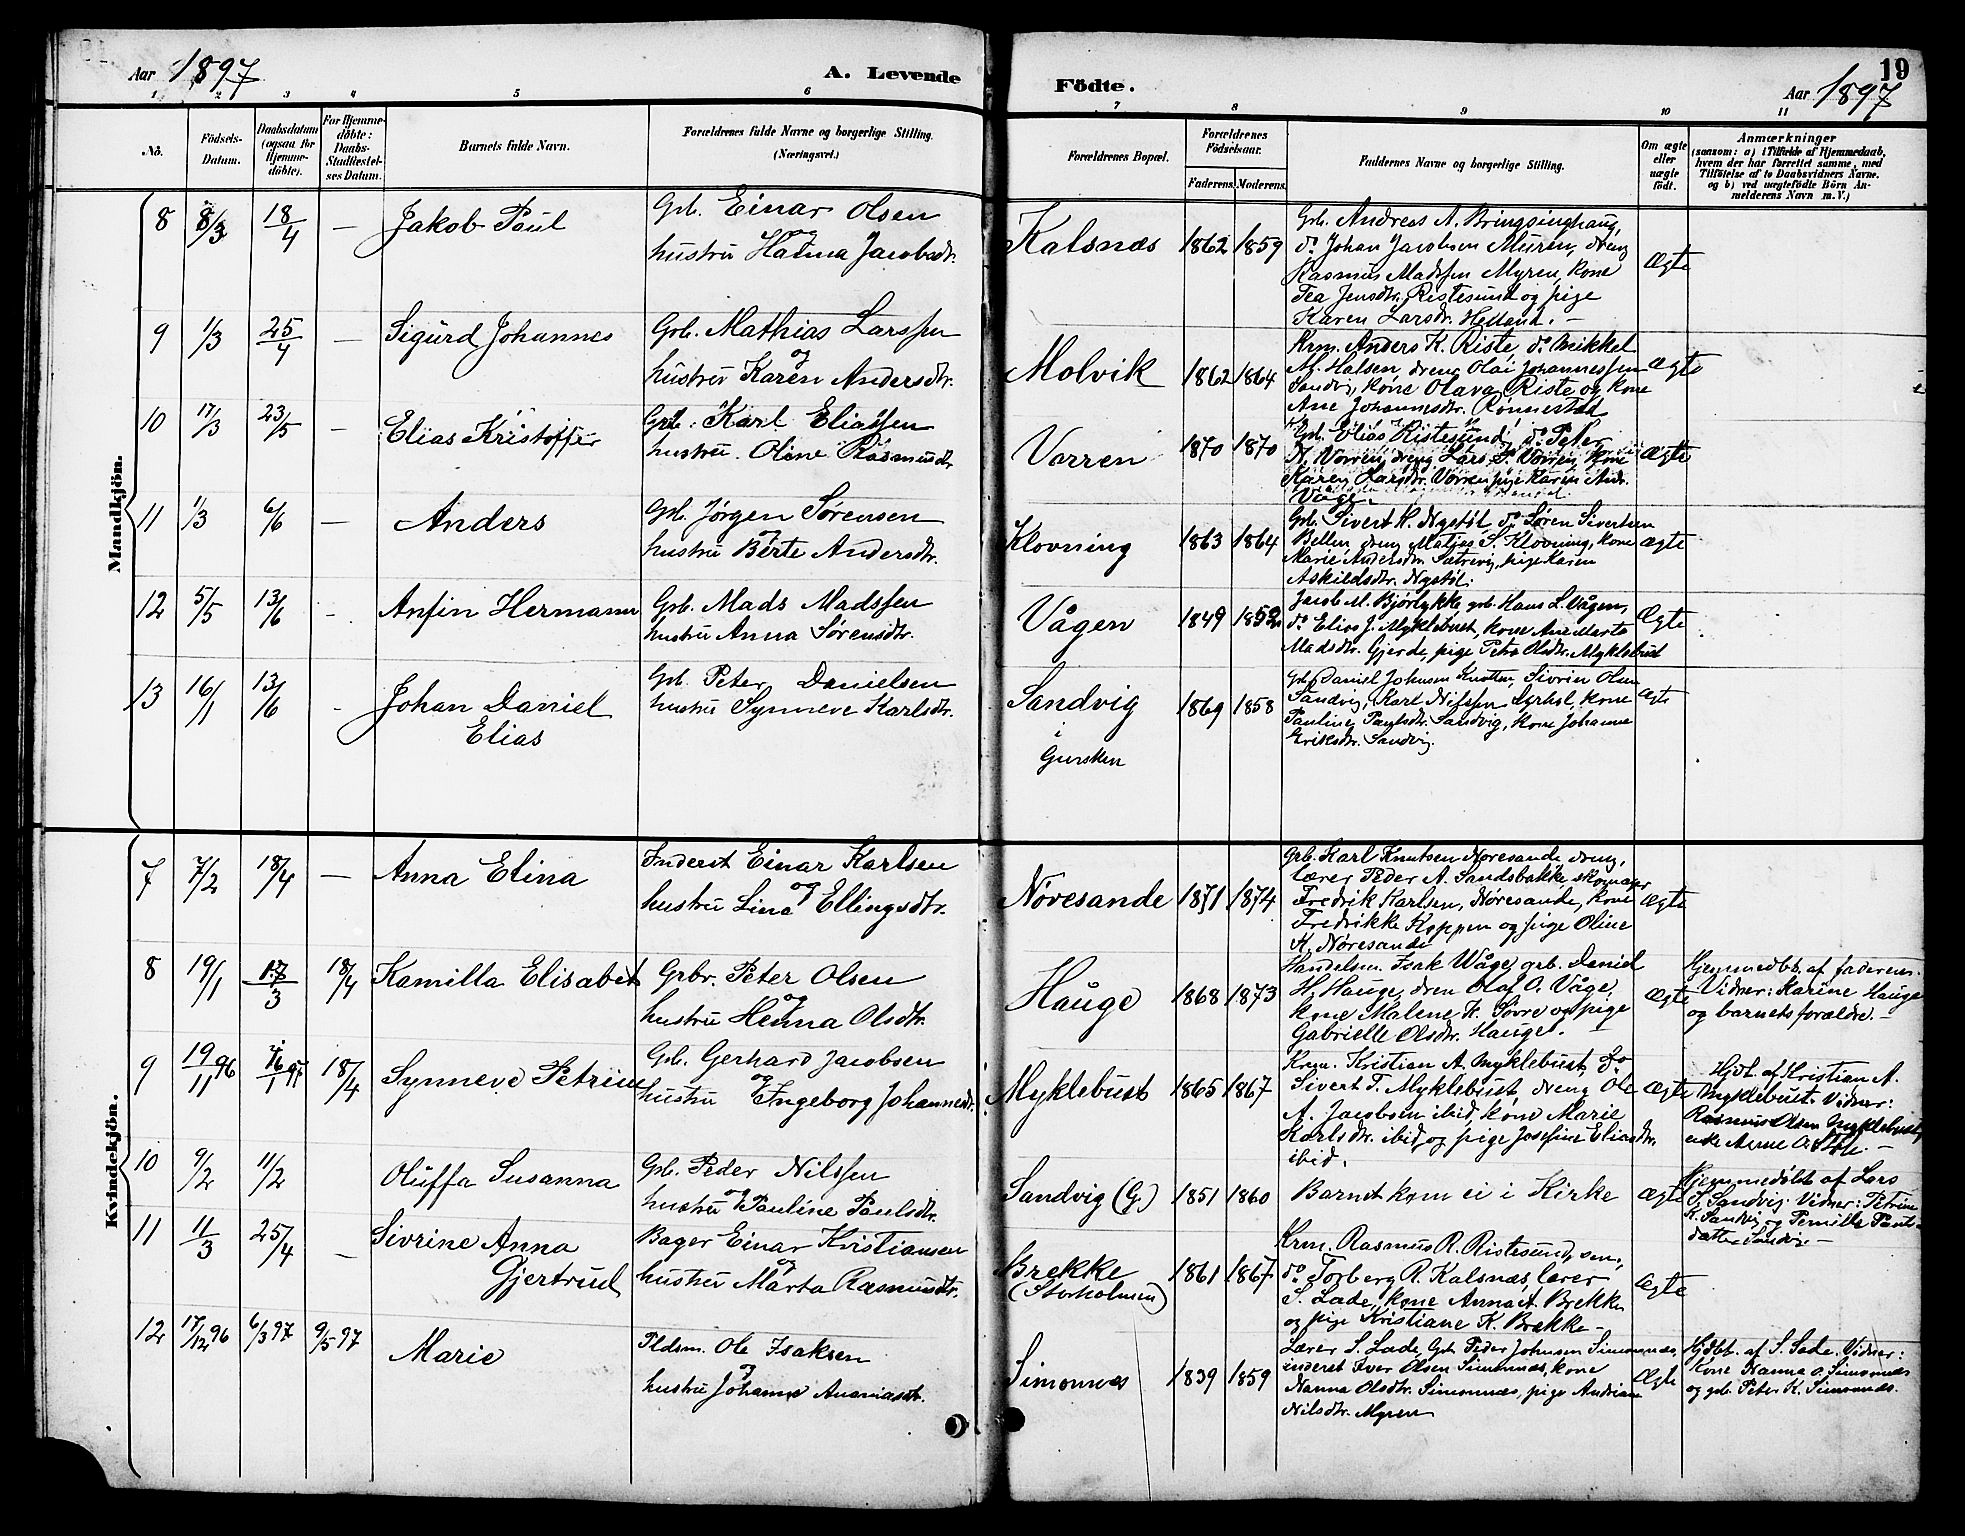 Aar 1897
A. Levende
Födte.
19
Aar 1897
1 2 3 4 5 6 7 8 9 10 11
No.
Födsels-
Datum.
Daabsdatum
(ogsaa for
Hjemme-
döbte).
For Hjemme-
döbte:
Daabs-
Stadfæstel-
ses Datum.
Barnets fulde Navn.
Forældrenes fulde Navne og borgerlige Stilling.
(Næringsvei.)
Forældrenes Bopæl.
Forældrenes
Födselsaar.
Faderens. Moderens.
Faddernes Navne og borgerlige Stilling.
Om ægte
eller
uægte
født.
Anmærkninger
(saasom: a) i Tilfælde af Hjemmedaab,
hvem der har forrettet samme, med
Tilföielse af to Daabsvidners Navne.
og b) ved uægtefødte Börn An-
melderens Navn m.V.)
Mandkjön.
8 8/3 18/4 — Jakob Paul
Grb. Einar Olsen
og
hustru Hanna Jacobsdtr.
Kalsnæs 1862 1859
Grb. Andreas A. Bringsinghaug,
do Johan Jacobsen Myren, dreng
Rasmus Madssen Myren, kone
Tea Jensdtr. Ristesund og pige
Karen Larsdtr. Helland. —
Ægte
9 1/3 25/4 — Sigurd Johannes
Grb. Mathias Larssen
og
hustru Karen Andersdtr.
Molvik 1862 1864
Krm. Anders K. Riste, do Mikkel
M. Halsen, dreng Olai Johannessen
Sandvig, kone Olava Riste og kone
Ane Johannesdtr. Rønnestad
Ægte
10 17/3 23/5 — Elias Kristoffer
Grb. Karl Eliassen
hustru. Oline Rasmusdtr
Vorren 1870 1870
Grb. Elias Ristesund, do Peter
N. Vorren, dreng Lars P. Vorren, kone
Karen Larsdtr. Vorren, pige Karen Andr.
Våge.
Ægte
11 1/3 6/6 — Anders
Grb. Jørgen Sørensen
og
hustru Berte Andersdtr.
Klovning 1863 1864
Grb. Sivert K. Nystøl do Søren Sivertsen
Bellen, dreng Matias S. Klovning, kone
Marie Andersdtr. Sætrevig, pige Karen
Askildsdtr. Nystøl.
Ægte
12 5/5 13/6 - Anfin Hermann
Grb. Mads Madssen
hustru Anna Sørensdtr.
Vågen 1849 1852
Jacob M. Bjørlykke, grb. Hans L. Vågen,
do Elias J. Myklebust, kone Ane Marta
Madsdtr. Gjerde, pige Petra Olsdtr. Myklebust
Ægte
13 16/1 13/6 - Johan Daniel
Elias
Grb. Peter Danielsen
hustru Synneve Karlsdtr.
Sandvig
i
Gursken
1869 1858
Grb. Daniel Johnsen Knotten, Sivrin Olsen
Sandvig, Karl Nilssen Dyrhol, kone
Pauline Paulsdtr. Sandvig, kone Johanne
Eriksdtr. Sandvig.
Ægte
Kvindekjön.
7 7/2 18/4 — Anna Elina
Inderst Einar Karlsen
og
hustru Lina Ellingsdtr.
Nøresande 1871 1874
Grb. Karl Knutsen Nøresande, dreng,
lærer Peder A. Sandsbakke, skomager
Fredrik Karlsen, Nøresande, kone
Fredrikke Koppen og pige Oline
K. Nøresande
Ægte
8 19/1 17/3 18/4 Kamilla Elisabet
Grbr. Peter Olsen
og
hustru Henna Olsdtr.
Hauge 1868 1873
Handelsm. Isak Wåge, grb. Daniel
H. Hauge, dren Olaf O. Våge,
kone Malene K. Sovre og pige
Gabrielle Olsdtr. Hauge. —
Ægte
Hjemmedbt. af faderen.
Vidner: Karine Hauge
og barnets forældre. —
9 19/11 96 16/1 97 18/4 Synneve Petrine
Grb. Gerhard Jacobsen
og
hustru Ingeborg Johannesdtr.
Myklebust 1865 1867
Krm. Kristian A. Myklebust, do
Sivert T. Myklebust, dreng Ole
A. Jacobsen ibid, kone Marie
Karlsdtr. ibid og pige Josefine Eliasdtr.
ibid.
Ægte
Hjdt. af Kristian A.
Myklebust. Vidner:
Rasmus Olsen Myklebust,
enke Anne O.
10 9/2 11/2 Oluffa Susanna
Grb. Peder Nilssen
og
hustru Pauline Paulsdtr.
Sandvig (G.) 1851 1860
Barnet kom ei i Kirke
Ægte
Hjemmedøbt af Lars
S. Sandvig. Vidner: Petrine
K. Sandvig og Pernille Pauls-
datter Sandvig. —
11 11/3 25/4 — Sivrine Anna
Gjertrud
Bager Einar Kristiansen
og
hustru Marta Rasmusdtr.
Brekke
(Storholmen)
1861 1867
Krm. Rasmus R. Ristesund, sen.,
do Torberg R. Kalsnæs, lærer
S. Lade, kone Anna A. Brekke
og pige Kristiane K. Brekke —
Ægte
12 17/12 96 6/3 97 9/5 97 Marie
Pldsm. Ole Isaksen
og
hustru Johanne Ananiasdtr.
Simonnes 1839 1859
Lærer S. Lade, Grb. Peder Johnsen Simonnæs,
inderst Iver Olsen Simonnæs, kone
Nanna Olsdtr. Simonnæs, pige Andriane
Nilsdtr. Myren
Ægte
Hjdbt. af S. Lade. Vidner:
Kone Nanna O. Simonnæs
og grb. Peter K. Simonnæs.